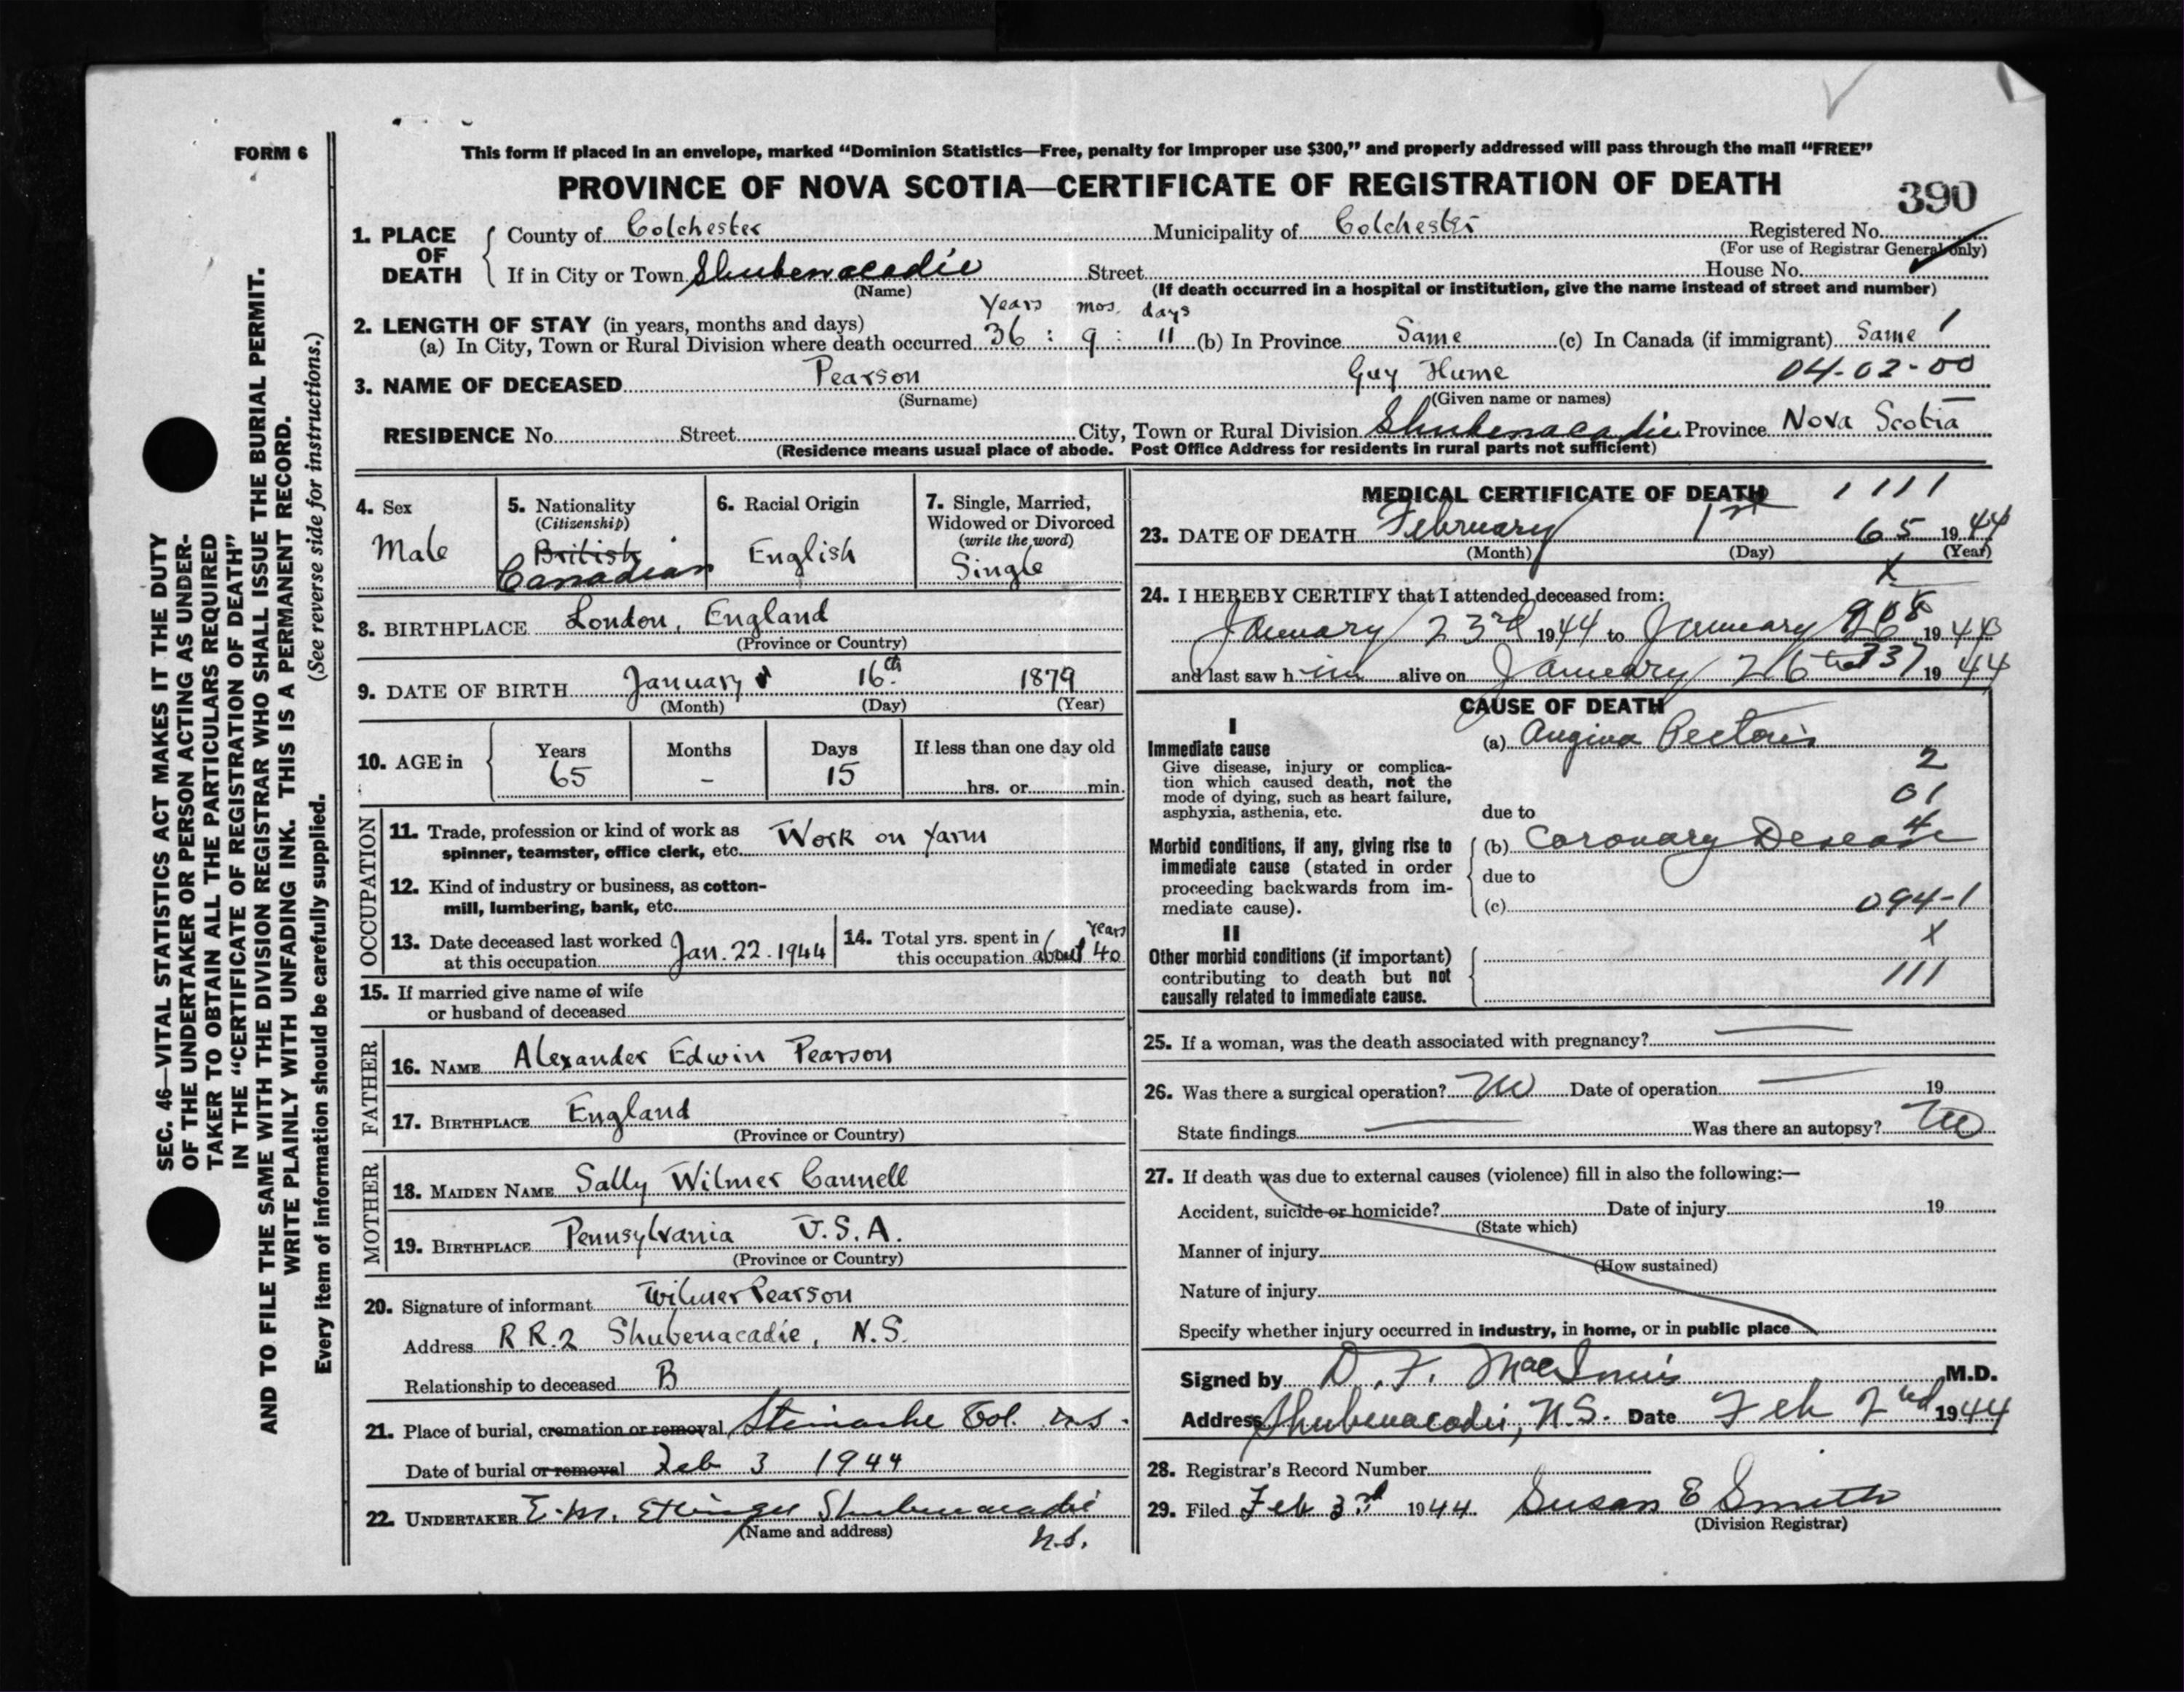 FORM 6
This form if placed in an envelope, marked “Dominion Statistics—Free, penalty for improper use $300,” and properly addressed will pass through the mail “FREE”
PROVINCE OF NOVA SCOTIA—CERTIFICATE OF REGISTRATION OF DEATH
390
1. PLACE OF DEATH
County of Colchester Municipality of Colchester Registered No.
(For use of Registrar General only)
If in City or Town Shubenacadie Street House No.
(Name) (If death occurred in a hospital or institution, give the name instead of street and number)
2. LENGTH OF STAY (in years, months and days) Years mos. days
(a) In City, Town or Rural Division where death occurred 36 : 9 : 11 (b) In Province Same (c) In Canada (if immigrant) Same 1
3. NAME OF DECEASED Pearson Guy Hume 04-02-00
(Surname) (Given name or names)
RESIDENCE No. Street City, Town or Rural Division Shubenacadie Province Nova Scotia
(Residence means usual place of abode. Post Office Address for residents in rural parts not sufficient)
4. Sex
Male
5. Nationality
(Citizenship)
British
Canadian
6. Racial Origin
English
7. Single, Married,
Widowed or Divorced
(write the word)
Single
8. BIRTHPLACE London, England
(Province or Country)
9. DATE OF BIRTH January 16th 1879
(Month) (Day) (Year)
10. AGE in
Years Months Days If less than one day old
65 - 15 hrs. or min.
OCCUPATION
11. Trade, profession or kind of work as
spinner, teamster, office clerk, etc. Work on farm
12. Kind of industry or business, as cotton-
mill, lumbering, bank, etc.
13. Date deceased last worked
at this occupation Jan. 22. 1944
14. Total yrs. spent in years
this occupation about 40
15. If married give name of wife
or husband of deceased
FATHER
16. NAME Alexander Edwin Pearson
17. BIRTHPLACE England
(Province or Country)
MOTHER
18. MAIDEN NAME Sally Wilmer Cannell
19. BIRTHPLACE Pennsylvania U.S.A.
(Province or Country)
20. Signature of informant Wilmer Pearson
Address R R.2 Shubenacadie, N.S.
Relationship to deceased B
21. Place of burial, cremation or removal Col. N.S.
Date of burial or removal Feb 3 1944
22. UNDERTAKER E. M. Shubenacadie
(Name and address) N.S.
MEDICAL CERTIFICATE OF DEATH 1 111
23. DATE OF DEATH February 1st 65 1944
(Month) (Day) (Year)
X
24. I HEREBY CERTIFY that I attended deceased from:
January 23rd 1944 to January 19
and last saw him alive on January 26th 1944
CAUSE OF DEATH
I
Immediate cause
Give disease, injury or complica-
tion which caused death, not the
mode of dying, such as heart failure,
asphyxia, asthenia, etc.
(a) Angina Pectoris
2
01
4
due to
Morbid conditions, if any, giving rise to
immediate cause (stated in order
proceeding backwards from im-
mediate cause).
(b) Coronary Disease
due to
(c) 094-1
X
II
Other morbid conditions (if important)
contributing to death but not
causally related to immediate cause.
111
25. If a woman, was the death associated with pregnancy?
26. Was there a surgical operation? No Date of operation 19
State findings Was there an autopsy? No
27. If death was due to external causes (violence) fill in also the following:—
Accident, suicide or homicide? Date of injury 19
(State which)
Manner of injury
(How sustained)
Nature of injury
Specify whether injury occurred in industry, in home, or in public place
Signed by D. F. MacInnis M.D.
Address Shubenacadie, N.S. Date Feb 2nd 1944
28. Registrar's Record Number
29. Filed Feb 3rd 1944 Susan E Smith
(Division Registrar)
SEC. 46—VITAL STATISTICS ACT MAKES IT THE DUTY
OF THE UNDERTAKER OR PERSON ACTING AS UNDER-
TAKER TO OBTAIN ALL THE PARTICULARS REQUIRED
IN THE “CERTIFICATE OF REGISTRATION OF DEATH”
AND TO FILE THE SAME WITH THE DIVISION REGISTRAR WHO SHALL ISSUE THE BURIAL PERMIT.
WRITE PLAINLY WITH UNFADING INK. THIS IS A PERMANENT RECORD.
Every item of information should be carefully supplied. (See reverse side for instructions.)